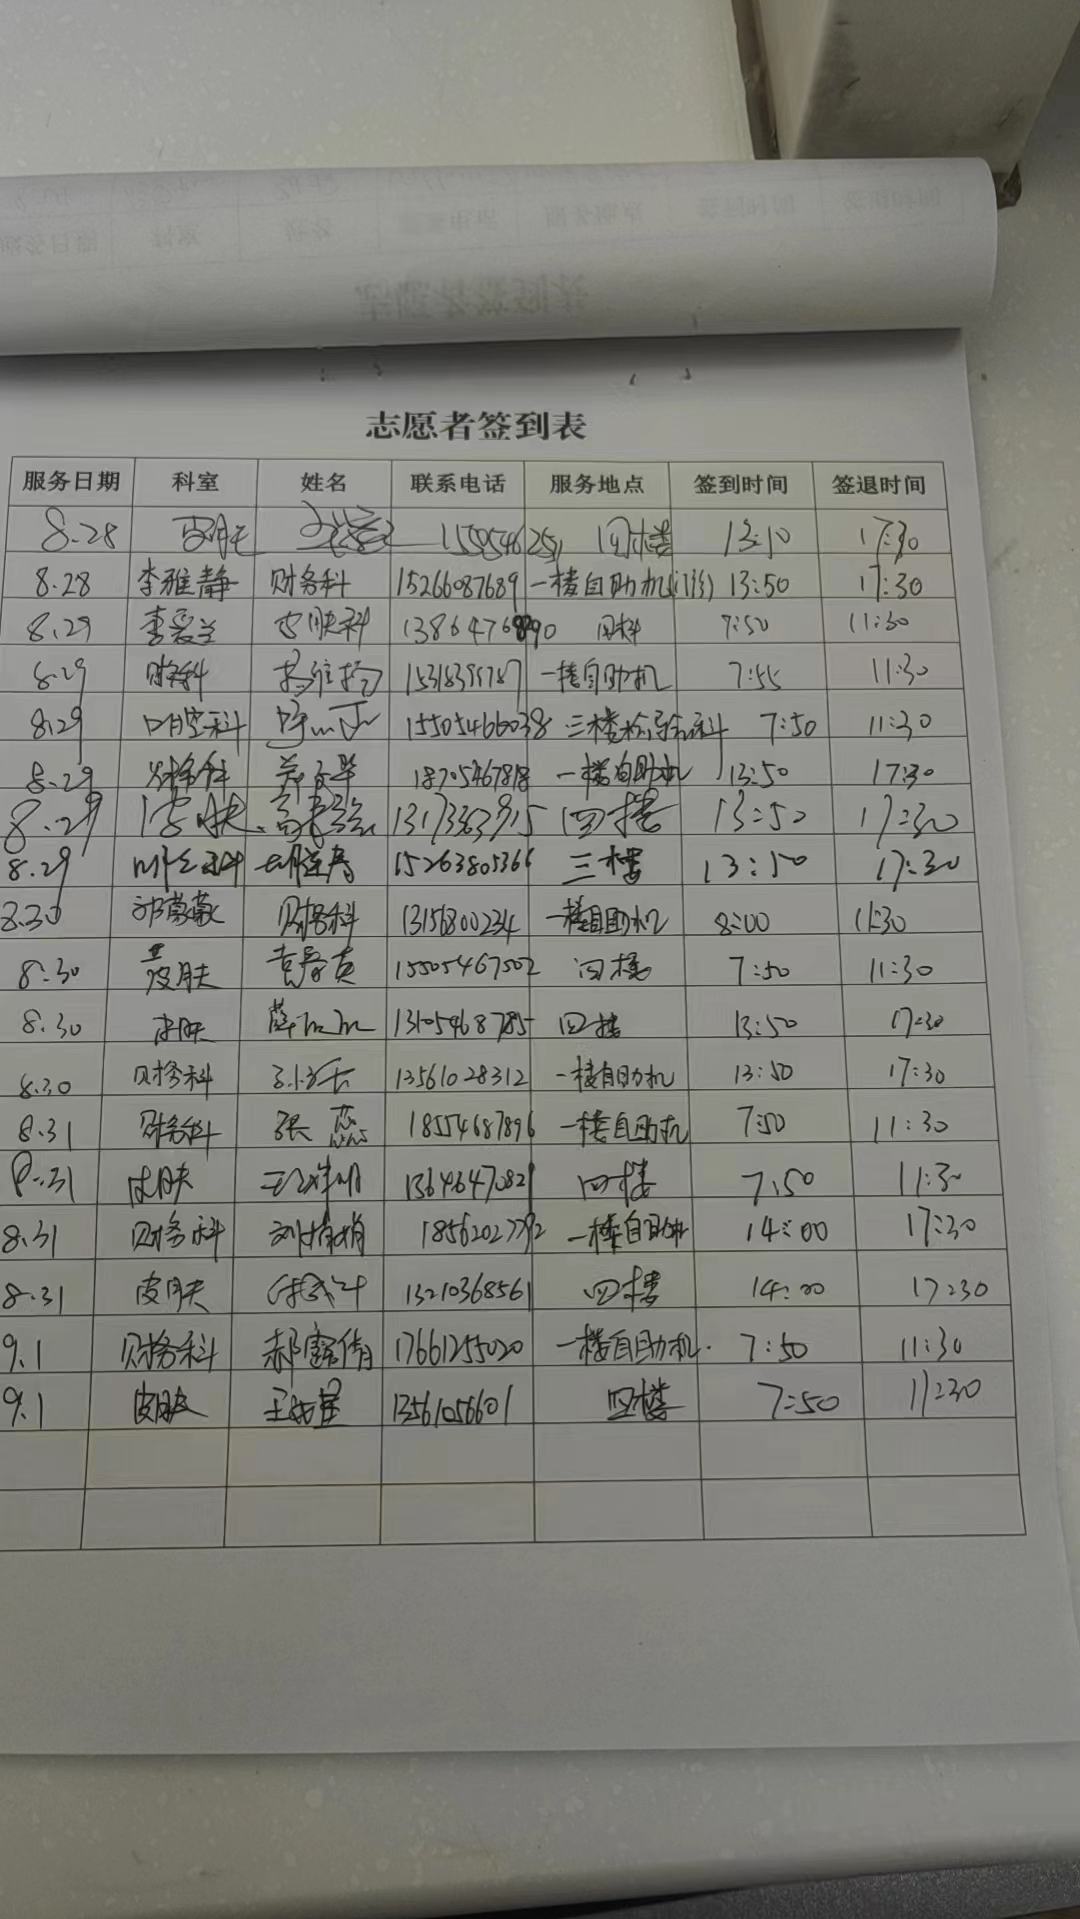 志愿者签到表
服务日期 科室 姓名 联系电话 服务地点 签到时间 签退时间
8.28 皮肤 四楼 13:10 17:30
8.28 李雅静 财务科 15266087689 一楼自助机 13:50 17:30
8.29 李爱兰 皮肤科 7:50 11:30
8.29 财务科 一楼自助机 7:55 11:30
8.29 口腔科 15505466038 三楼检验科 7:50 11:30
8.29 财务科 18705467818 一楼自助机 13:50 17:30
8.29 皮肤 四楼 13:50 17:30
8.29 15263805366 三楼 13:50 17:30
8.30 财务科 13156800234 一楼自助机 8:00 11:30
8.30 皮肤 15505467502 四楼 7:50 11:30
8.30 皮肤 13105468785 四楼 13:50 17:30
8.30 财务科 13561028312 一楼自助机 13:50 17:30
8.31 财务科 张蕊 18554687896 一楼自助机 7:50 11:30
8.31 皮肤 13646470821 四楼 7:50 11:30
8.31 财务科 刘娟娟 18562027792 一楼自助机 14:00 17:30
8.31 皮肤 13210368561 四楼 14:00 17:30
9.1 财务科 郝露倩 17661255020 一楼自助机. 7:50 11:30
9.1 皮肤 13561056601 四楼 7:50 11:30